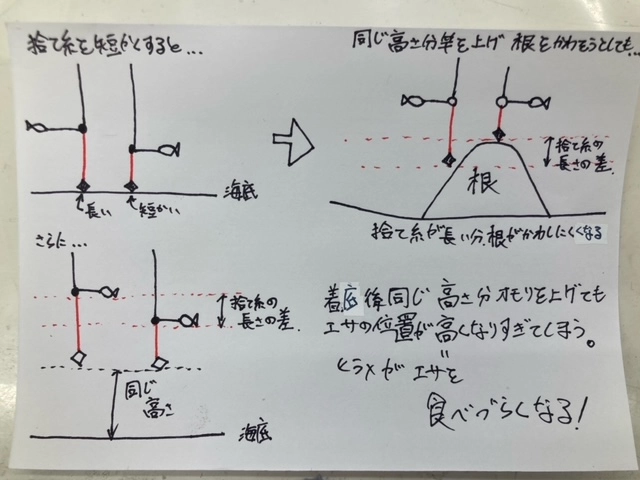 捨て糸を短かくすると...
長い
短かい
海底
同じ高さ分竿を上げ 根をかわそうとしても...
捨て糸の
長さの差.
根
捨て糸が長い分、根がかわしにくくなる
さらに...
捨て糸の
長さの差.
同じ
高さ
海底
着底後同じ高さ分オモリを上げても
エサの位置が高くなりすぎてしまう。
〃
ヒラメがエサを
食べづらくなる!